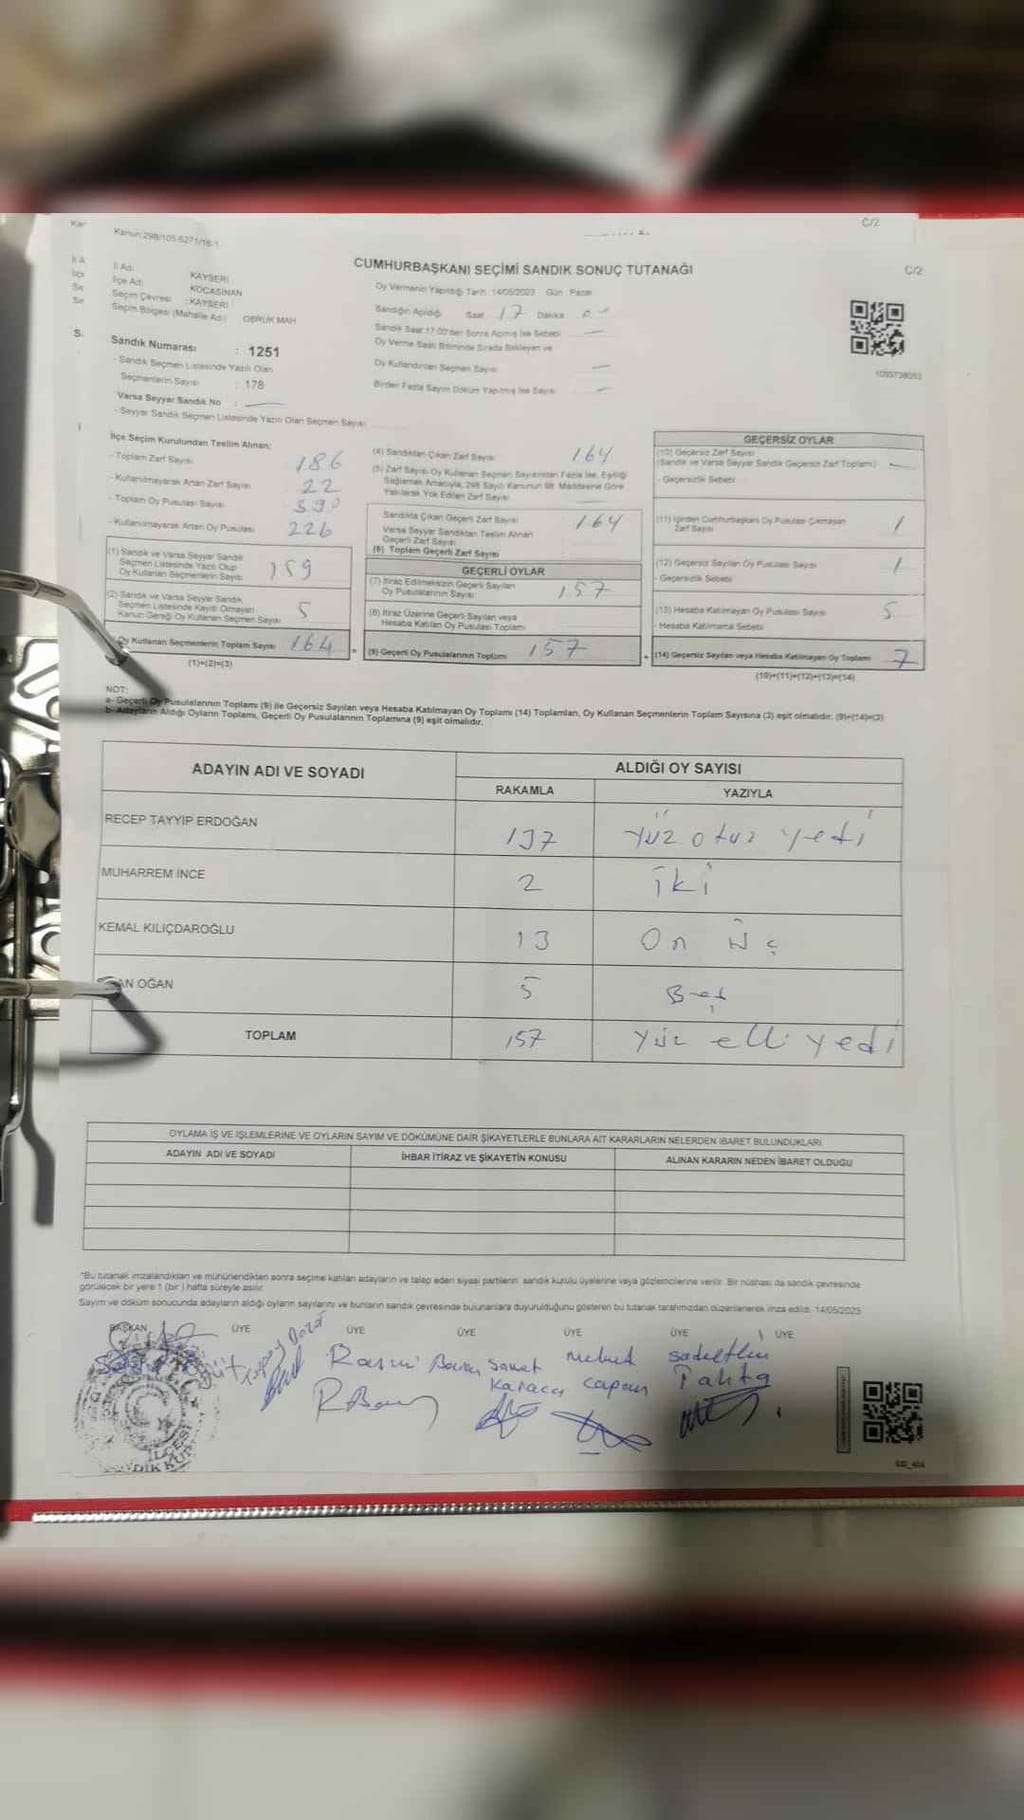 C/2
Kanun:298/105 6271/18-1
CUMHURBAŞKANI SEÇİMİ SANDIK SONUÇ TUTANAĞI
C/2
İl Adı: KAYSERİ
İlçe Adı: KOCASİNAN
Seçim Çevresi :KAYSERİ
Seçim Bölgesi (Mahalle Adı) OBRUK MAH
Sandık Numarası : 1251
- Sandık Seçmen Listesinde Yazılı Olan
Seçmenlerin Sayısı : 178
Varsa Seyyar Sandık No :
- Seyyar Sandık Seçmen Listesinde Yazılı Olan Seçmen Sayısı:
Oy Vermenin Yapıldığı Tarih :14/05/2023 Gün : Pazar
Sandığın Açıldığı Saat 17 Dakika
Sandık Saat 17.00'den Sonra Açılmış İse Sebebi
Oy Verme Saati Bitiminde Sırada Bekleyen ve
Oy Kullandırılan Seçmen Sayısı
Birden Fazla Sayım Döküm Yapılmış İse Sayısı
1093738053
İlçe Seçim Kurulundan Teslim Alınan:
- Toplam Zarf Sayısı 186
- Kullanılmayarak Artan Zarf Sayısı 22
- Toplam Oy Pusulası Sayısı 390
- Kullanılmayarak Artan Oy Pusulası 226
(1) Sandık ve Varsa Seyyar Sandık
Seçmen Listesinde Yazılı Olup
Oy Kullanan Seçmenlerin Sayısı 159
(2) Sandık ve Varsa Seyyar Sandık
Seçmen Listesinde Kayıtlı Olmayan
Kanun Gereği Oy Kullanan Seçmen Sayısı 5
Oy Kullanan Seçmenlerin Toplam Sayısı 164
(1)+(2)=(3)
(4) Sandıktan Çıkan Zarf Sayısı 164
(5) Zarf Sayısı Oy Kullanan Seçmen Sayısından Fazla İse, Eşitliği
Sağlamak Amacıyla, 298 Sayılı Kanunun 98. Maddesine Göre
Yakılarak Yok Edilen Zarf Sayısı
Sandıkta Çıkan Geçerli Zarf Sayısı 164
Varsa Seyyar Sandıktan Teslim Alınan
Geçerli Zarf Sayısı
(6) Toplam Geçerli Zarf Sayısı
GEÇERLİ OYLAR
(7) İtiraz Edilmeksizin Geçerli Sayılan
Oy Pusulalarının Sayısı 157
(8) İtiraz Üzerine Geçerli Sayılan veya
Hesaba Katılan Oy Pusulası Toplamı
(9) Geçerli Oy Pusulalarının Toplamı 157
GEÇERSİZ OYLAR
(10) Geçersiz Zarf Sayısı
(Sandık ve Varsa Seyyar Sandık Geçersiz Zarf Toplamı)
- Geçersizlik Sebebi:
(11) İçinden Cumhurbaşkanı Oy Pusulası Çıkmayan
Zarf Sayısı 1
(12) Geçersiz Sayılan Oy Pusulası Sayısı 1
- Geçersizlik Sebebi
(13) Hesaba Katılmayan Oy Pusulası Sayısı 5
- Hesaba Katılmama Sebebi
(14) Geçersiz Sayılan veya Hesaba Katılmayan Oy Toplamı 7
(10)+(11)+(12)+(13)=(14)
NOT:
a- Geçerli Oy Pusulalarının Toplamı (9) ile Geçersiz Sayılan veya Hesaba Katılmayan Oy Toplamı (14) Toplamları, Oy Kullanan Seçmenlerin Toplam Sayısına (3) eşit olmalıdır. (9)+(14)=(3)
b- Adayların Aldığı Oyların Toplamı, Geçerli Oy Pusulalarının Toplamına (9) eşit olmalıdır.
ADAYIN ADI VE SOYADI ALDIĞI OY SAYISI
RAKAMLA YAZIYLA
RECEP TAYYİP ERDOĞAN 137 Yüz otuz yedi
MUHARREM İNCE 2 İki
KEMAL KILIÇDAROĞLU 13 On üç
AN OĞAN 5 Beş
TOPLAM 157 Yüz elli yedi
OYLAMA İŞ VE İŞLEMLERİNE VE OYLARIN SAYIM VE DÖKÜMÜNE DAİR ŞİKAYETLERLE BUNLARA AİT KARARLARIN NELERDEN İBARET BULUNDUKLARI
ADAYIN ADI VE SOYADI İHBAR İTİRAZ VE ŞİKAYETİN KONUSU ALINAN KARARIN NEDEN İBARET OLDUĞU
*Bu tutanak imzalandıktan ve mühürlendikten sonra seçime katılan adayların ve talep eden siyasi partilerin sandık kurulu üyelerine veya gözlemcilerine verilir. Bir nüshası da sandık çevresinde
görülecek bir yere 1 (bir ) hafta süreyle asılır.
Sayım ve döküm sonucunda adayların aldığı oyların sayılarını ve bunların sandık çevresinde bulunanlara duyurulduğunu gösteren bu tutanak tarafımızdan düzenlenerek imza edildi. 14/05/2023
BAŞKAN ÜYE ÜYE ÜYE ÜYE ÜYE ÜYE
Samet Mehmet Sadettin
Karaca Çapan Tahta